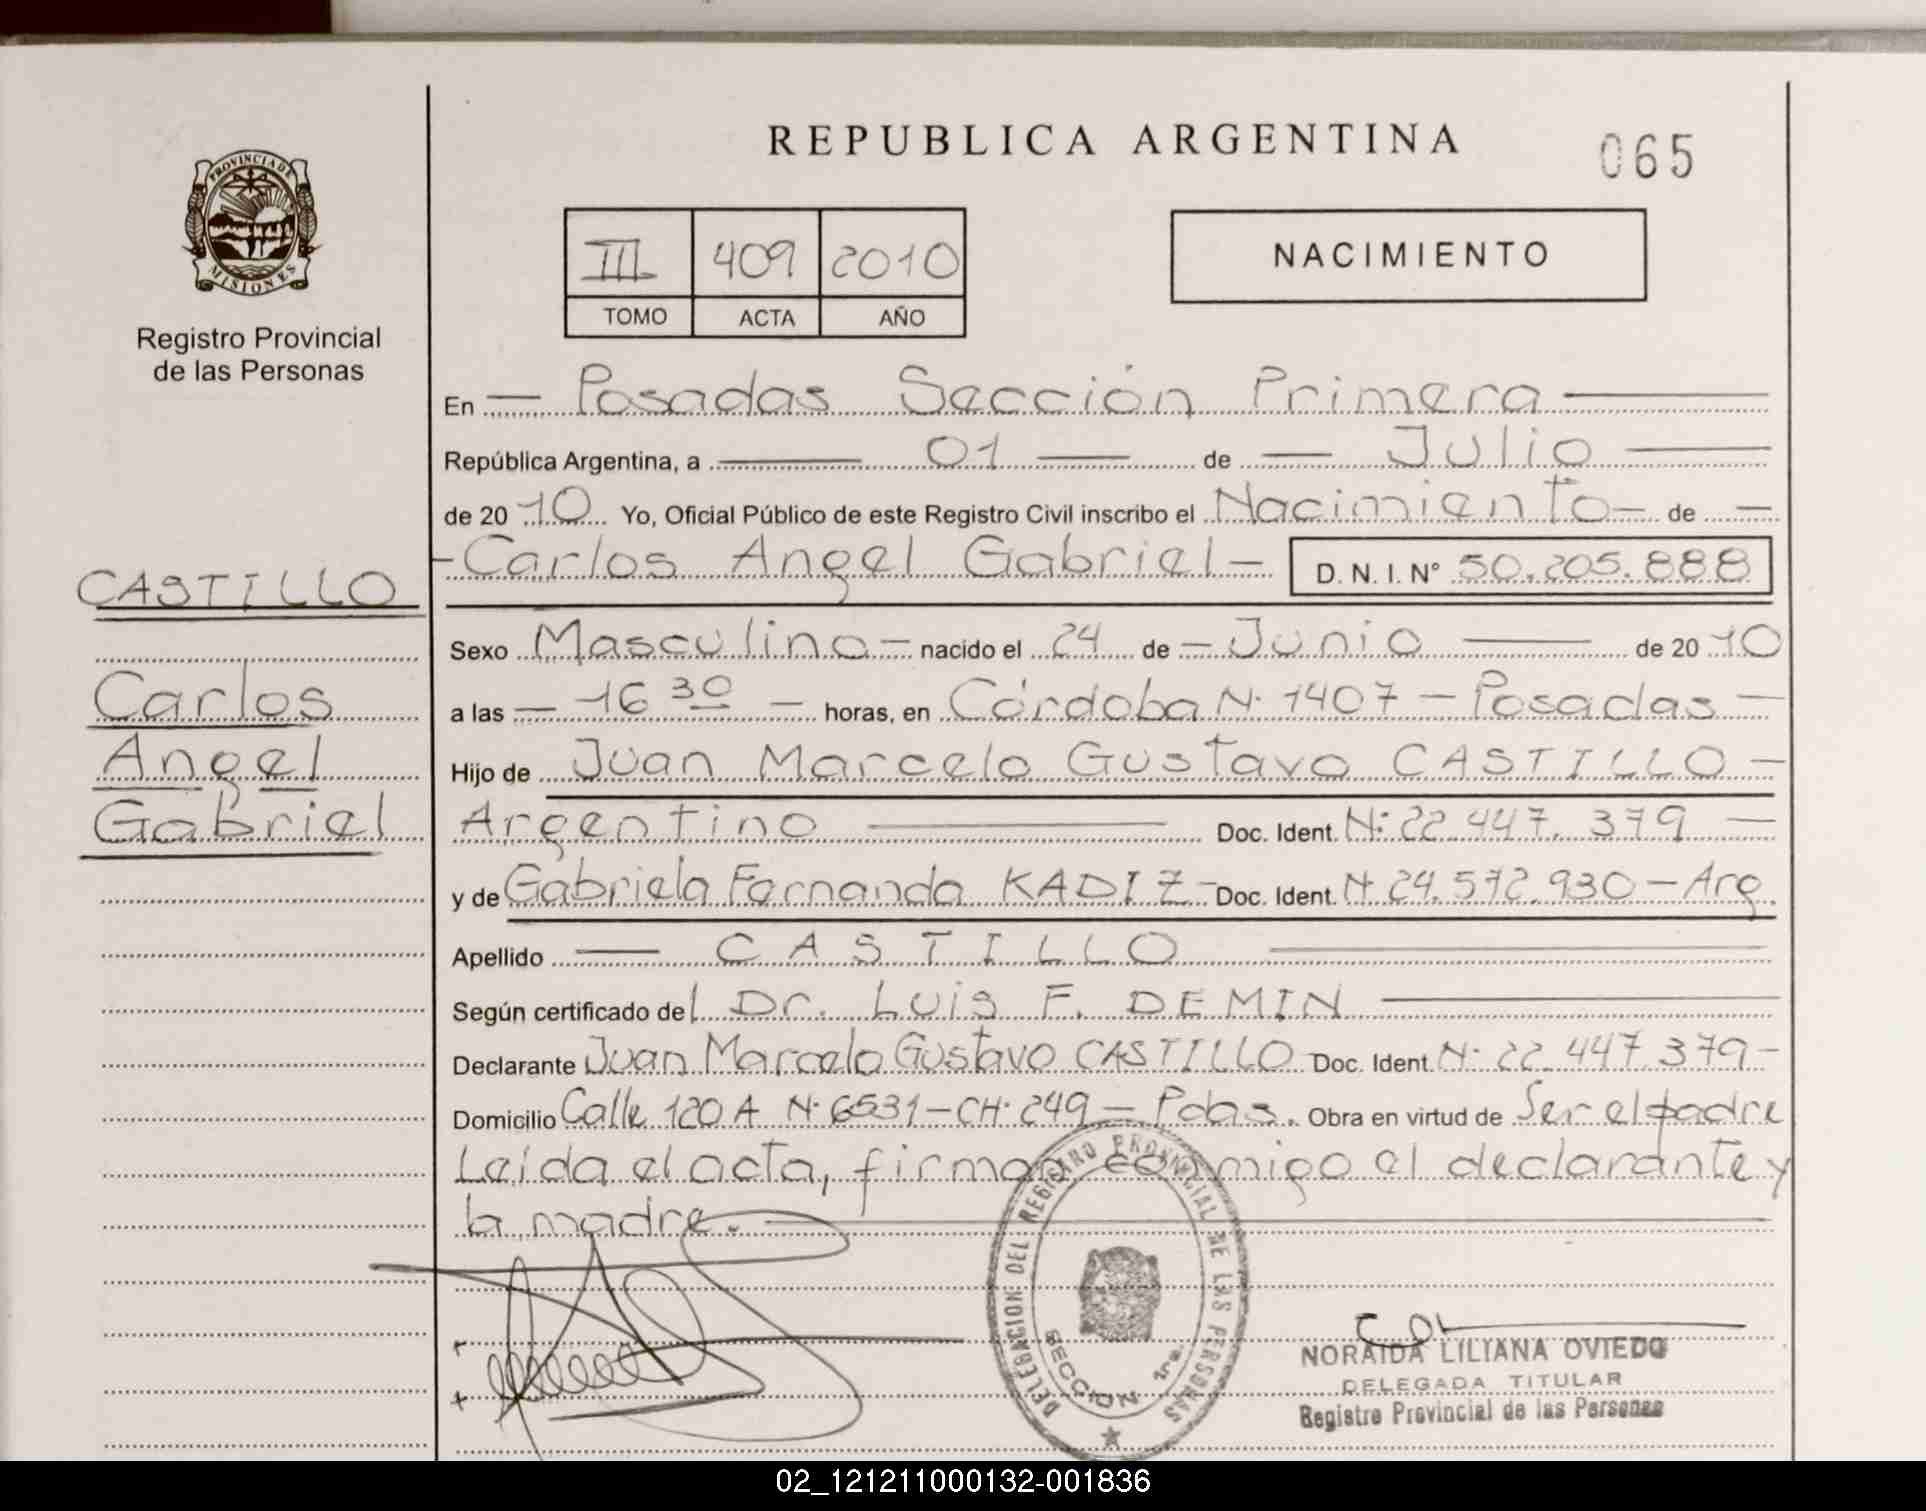 REPUBLICA ARGENTINA
065
PROVINCIA DE
MISIONES
Registro Provincial
de las Personas
III 409 2010
TOMO ACTA AÑO
NACIMIENTO
En — Posadas Sección Primera —
República Argentina, a — 01 — de — Julio —
de 2010 Yo, Oficial Público de este Registro Civil inscribo el Nacimiento — de —
- Carlos Angel Gabriel - D. N. I. N° 50.205.888
CASTILLO
Carlos
Angel
Gabriel
Sexo Masculino — nacido el 24 de — Junio — de 2010
a las — 16 30 — horas, en Córdoba N° 1407 — Posadas —
Hijo de Juan Marcelo Gustavo CASTILLO —
Argentino — Doc. Ident. N° 22.447.379 —
y de Gabriela Fernanda KADIZ - Doc. Ident. N° 24.572.930 — Arg.
Apellido — CASTILLO —
Según certificado del Dr. Luis F. DEMIN —
Declarante Juan Marcelo Gustavo CASTILLO Doc. Ident. N° 22.447.379 -
Domicilio Calle 120 A N° 6531 - CH. 249 — Pdas. Obra en virtud de Ser el padre
Leída el acta, firman conmigo el declarante y
la madre. —
DELEGACION DEL REGISTRO PROVINCIAL DE LAS PERSONAS
SECCION 1ra.
NORAIDA LILIANA OVIEDO
DELEGADA TITULAR
Registro Provincial de las Personas
02_121211000132-001836